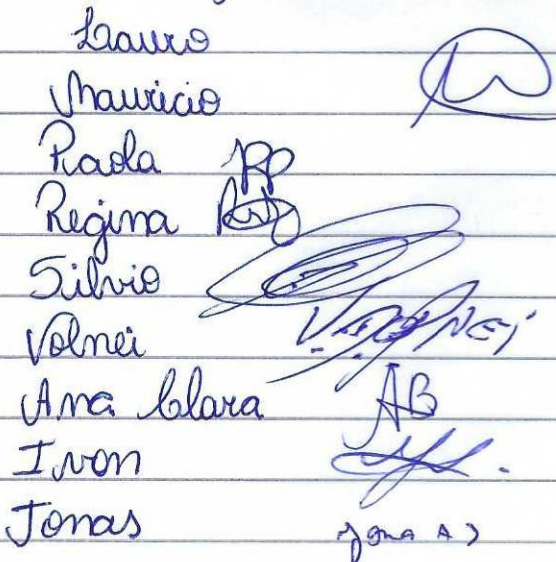 Lauro
Mauricio
Paola RP
Regina
Silvio
Volnei VOLNEI
Ana Clara AB
Ivon
Jonas Jona A S